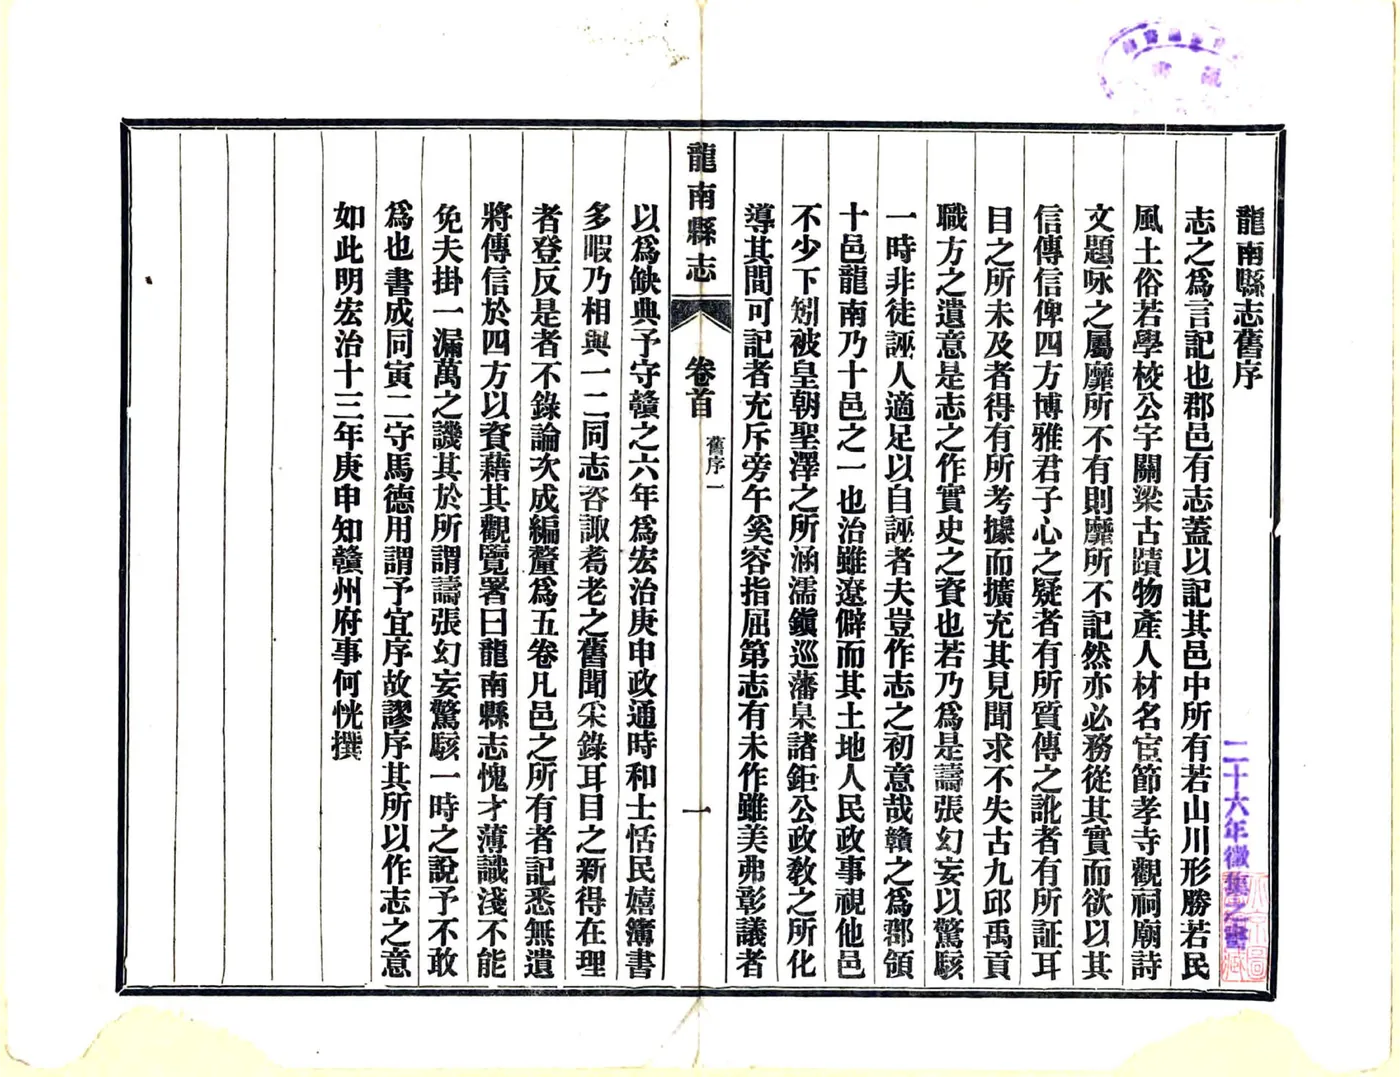 龍南縣志舊序
志之爲言記也郡邑有志蓋以記其邑中所有若山川形勝若民
風土俗若學校公宇關梁古蹟物產人材名宦節孝寺觀祠廟詩
文題咏之屬靡所不有則靡所不記然亦必務從其實而欲以其
信傳信俾四方博雅君子心之疑者有所質傳之訛者有所証耳
目之所未及者得有所考據而擴充其見聞求不失古九邱禹貢
職方之遺意是志之作實史之資也若乃爲是譸張幻妄以驚駭
一時非徒誣人適足以自誣者夫豈作志之初意哉贛之爲郡領
十邑龍南乃十邑之一也治雖遼僻而其土地人民政事視他邑
不少下矧被皇朝聖澤之所涵濡鎭巡藩臬諸鉅公政敎之所化
導其間可記者充斥旁午奚容指屈第志有未作雖美弗彰議者
龍南縣志
卷首
舊序一
一
以爲缺典予守贛之六年爲宏治庚申政通時和士恬民嬉簿書
多暇乃相與一二同志咨諏耆老之舊聞采錄耳目之新得在理
者登反是者不錄論次成編釐爲五卷凡邑之所有者記悉無遺
將傳信於四方以資藉其觀覽署曰龍南縣志愧才薄識淺不能
免夫掛一漏萬之譏其於所謂譸張幻妄驚駭一時之說予不敢
爲也書成同寅二守馬德用謂予宜序故謬序其所以作志之意
如此明宏治十三年庚申知贛州府事何恍撰
二十六年徵集之書